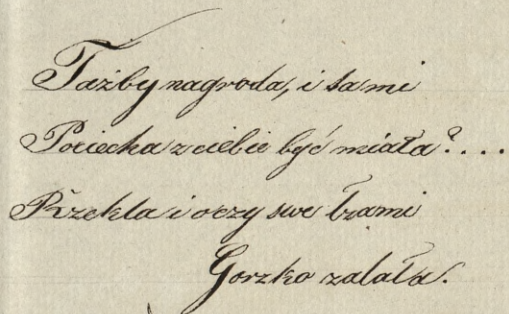 Tażby nagroda, i ta mi
Pociecha z ciebie być miała?....
Rzekła i oczy swe łzami
Gorzko zalała.